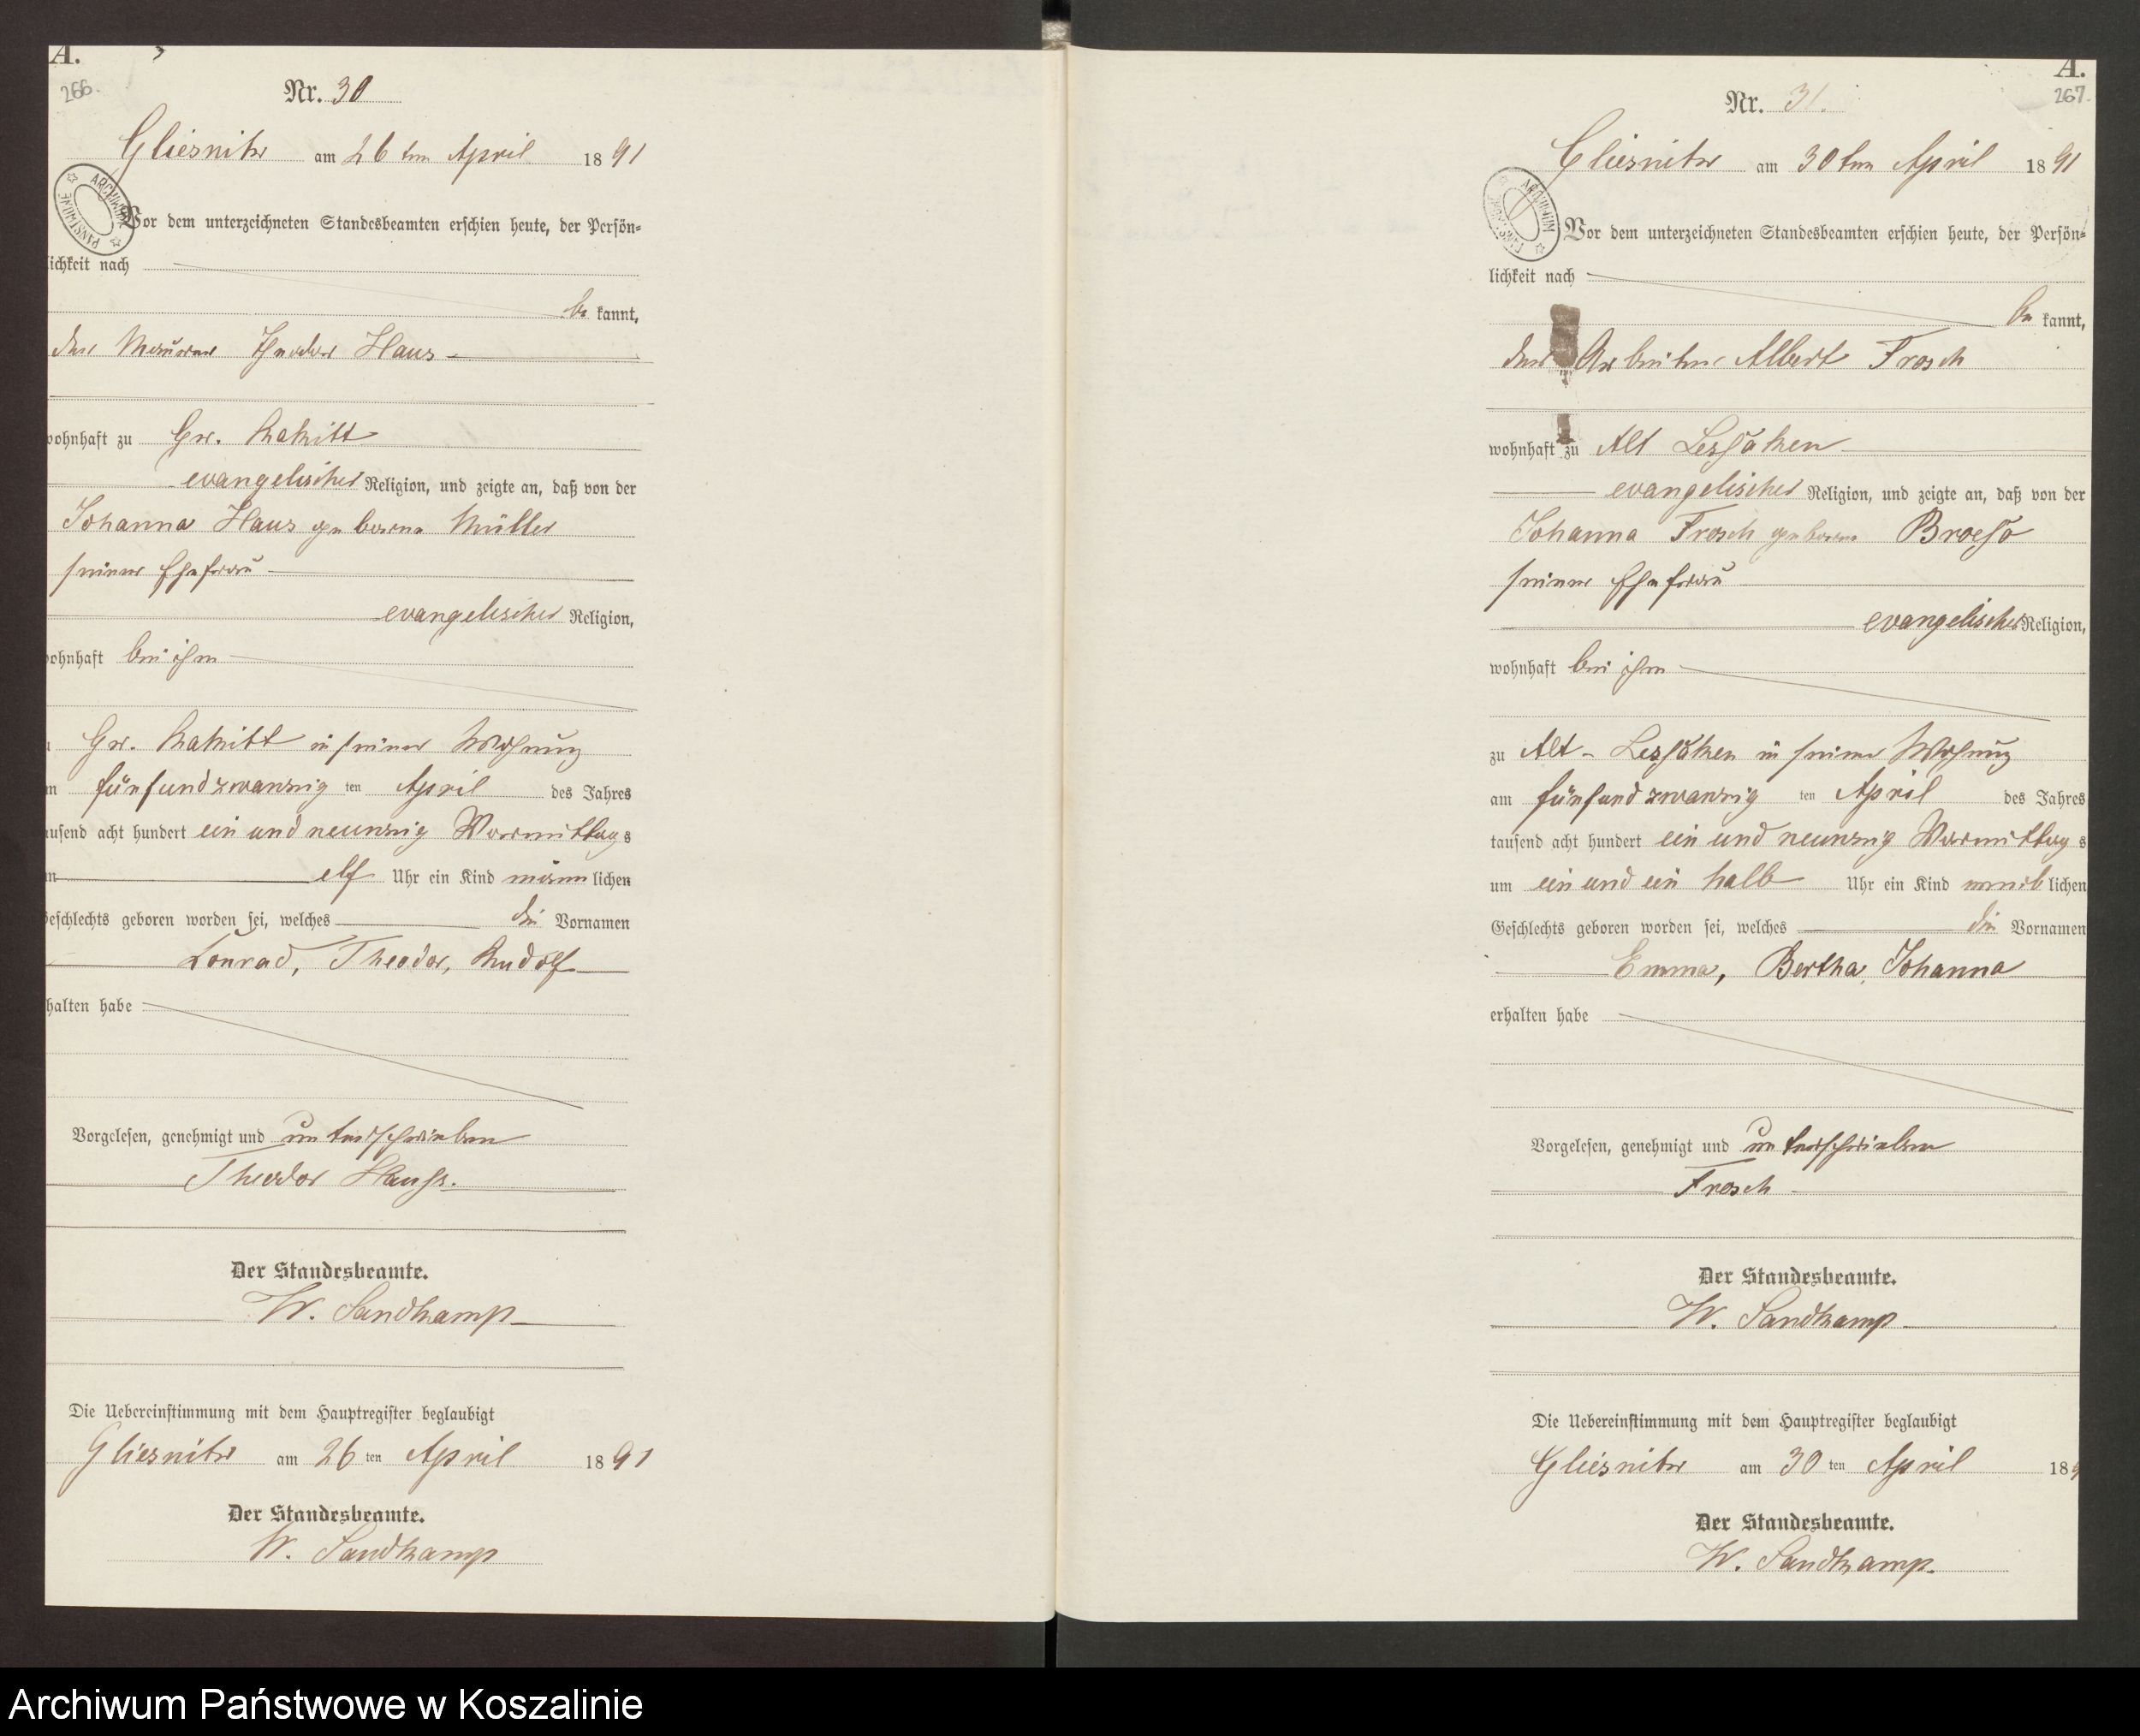 A.
266.
Nr. 30
Gliesnitz am 26ten April 1891
Vor dem unterzeichneten Standesbeamten erschien heute, der Persön-
lichkeit nach
be kannt,
der Maurer Theodor Haus
wohnhaft zu Gr. Rakitt
evangelischer Religion, und zeigte an, daß von der
Johanna Haus geborne Müller
seiner Ehefrau
evangelischer Religion,
wohnhaft bei ihm
Gr. Rakitt in seiner Wohnung
fünfundzwanzig ten April des Jahres
tausend acht hundert ein und neunzig Vormittags
elf Uhr ein Kind männlichen
Geschlechts geboren worden sei, welches die Vornamen
Conrad, Theodor, Rudolf
halten habe
Vorgelesen, genehmigt und unterschrieben
Theodor Hauss.
Der Standesbeamte.
W. Sandkamp
Die Uebereinstimmung mit dem Hauptregister beglaubigt
Gliesnitz am 26 ten April 1891
Der Standesbeamte.
W. Sandkamp
A.
267.
Nr. 31.
Gliesnitz am 30ten April 1891
Vor dem unterzeichneten Standesbeamten erschien heute, der Persön-
lichkeit nach
be kannt,
der Arbeiter Albert Frosch
wohnhaft zu Alt
evangelischer Religion, und zeigte an, daß von der
Johanna Frosch geborne
seiner Ehefrau
evangelischer Religion,
wohnhaft bei ihm
zu Alt- in seiner Wohnung
am fünfundzwanzig ten April des Jahres
tausend acht hundert ein und neunzig Vormittags
um ein und ein halb Uhr ein Kind weiblichen
Geschlechts geboren worden sei, welches die Vornamen
Emma, Bertha, Johanna
erhalten habe
Vorgelesen, genehmigt und unterschrieben
Frosch
Der Standesbeamte.
W. Sandkamp
Die Uebereinstimmung mit dem Hauptregister beglaubigt
Gliesnitz am 30 ten April 189
Der Standesbeamte.
W. Sandkamp.
Archiwum Państwowe w Koszalinie